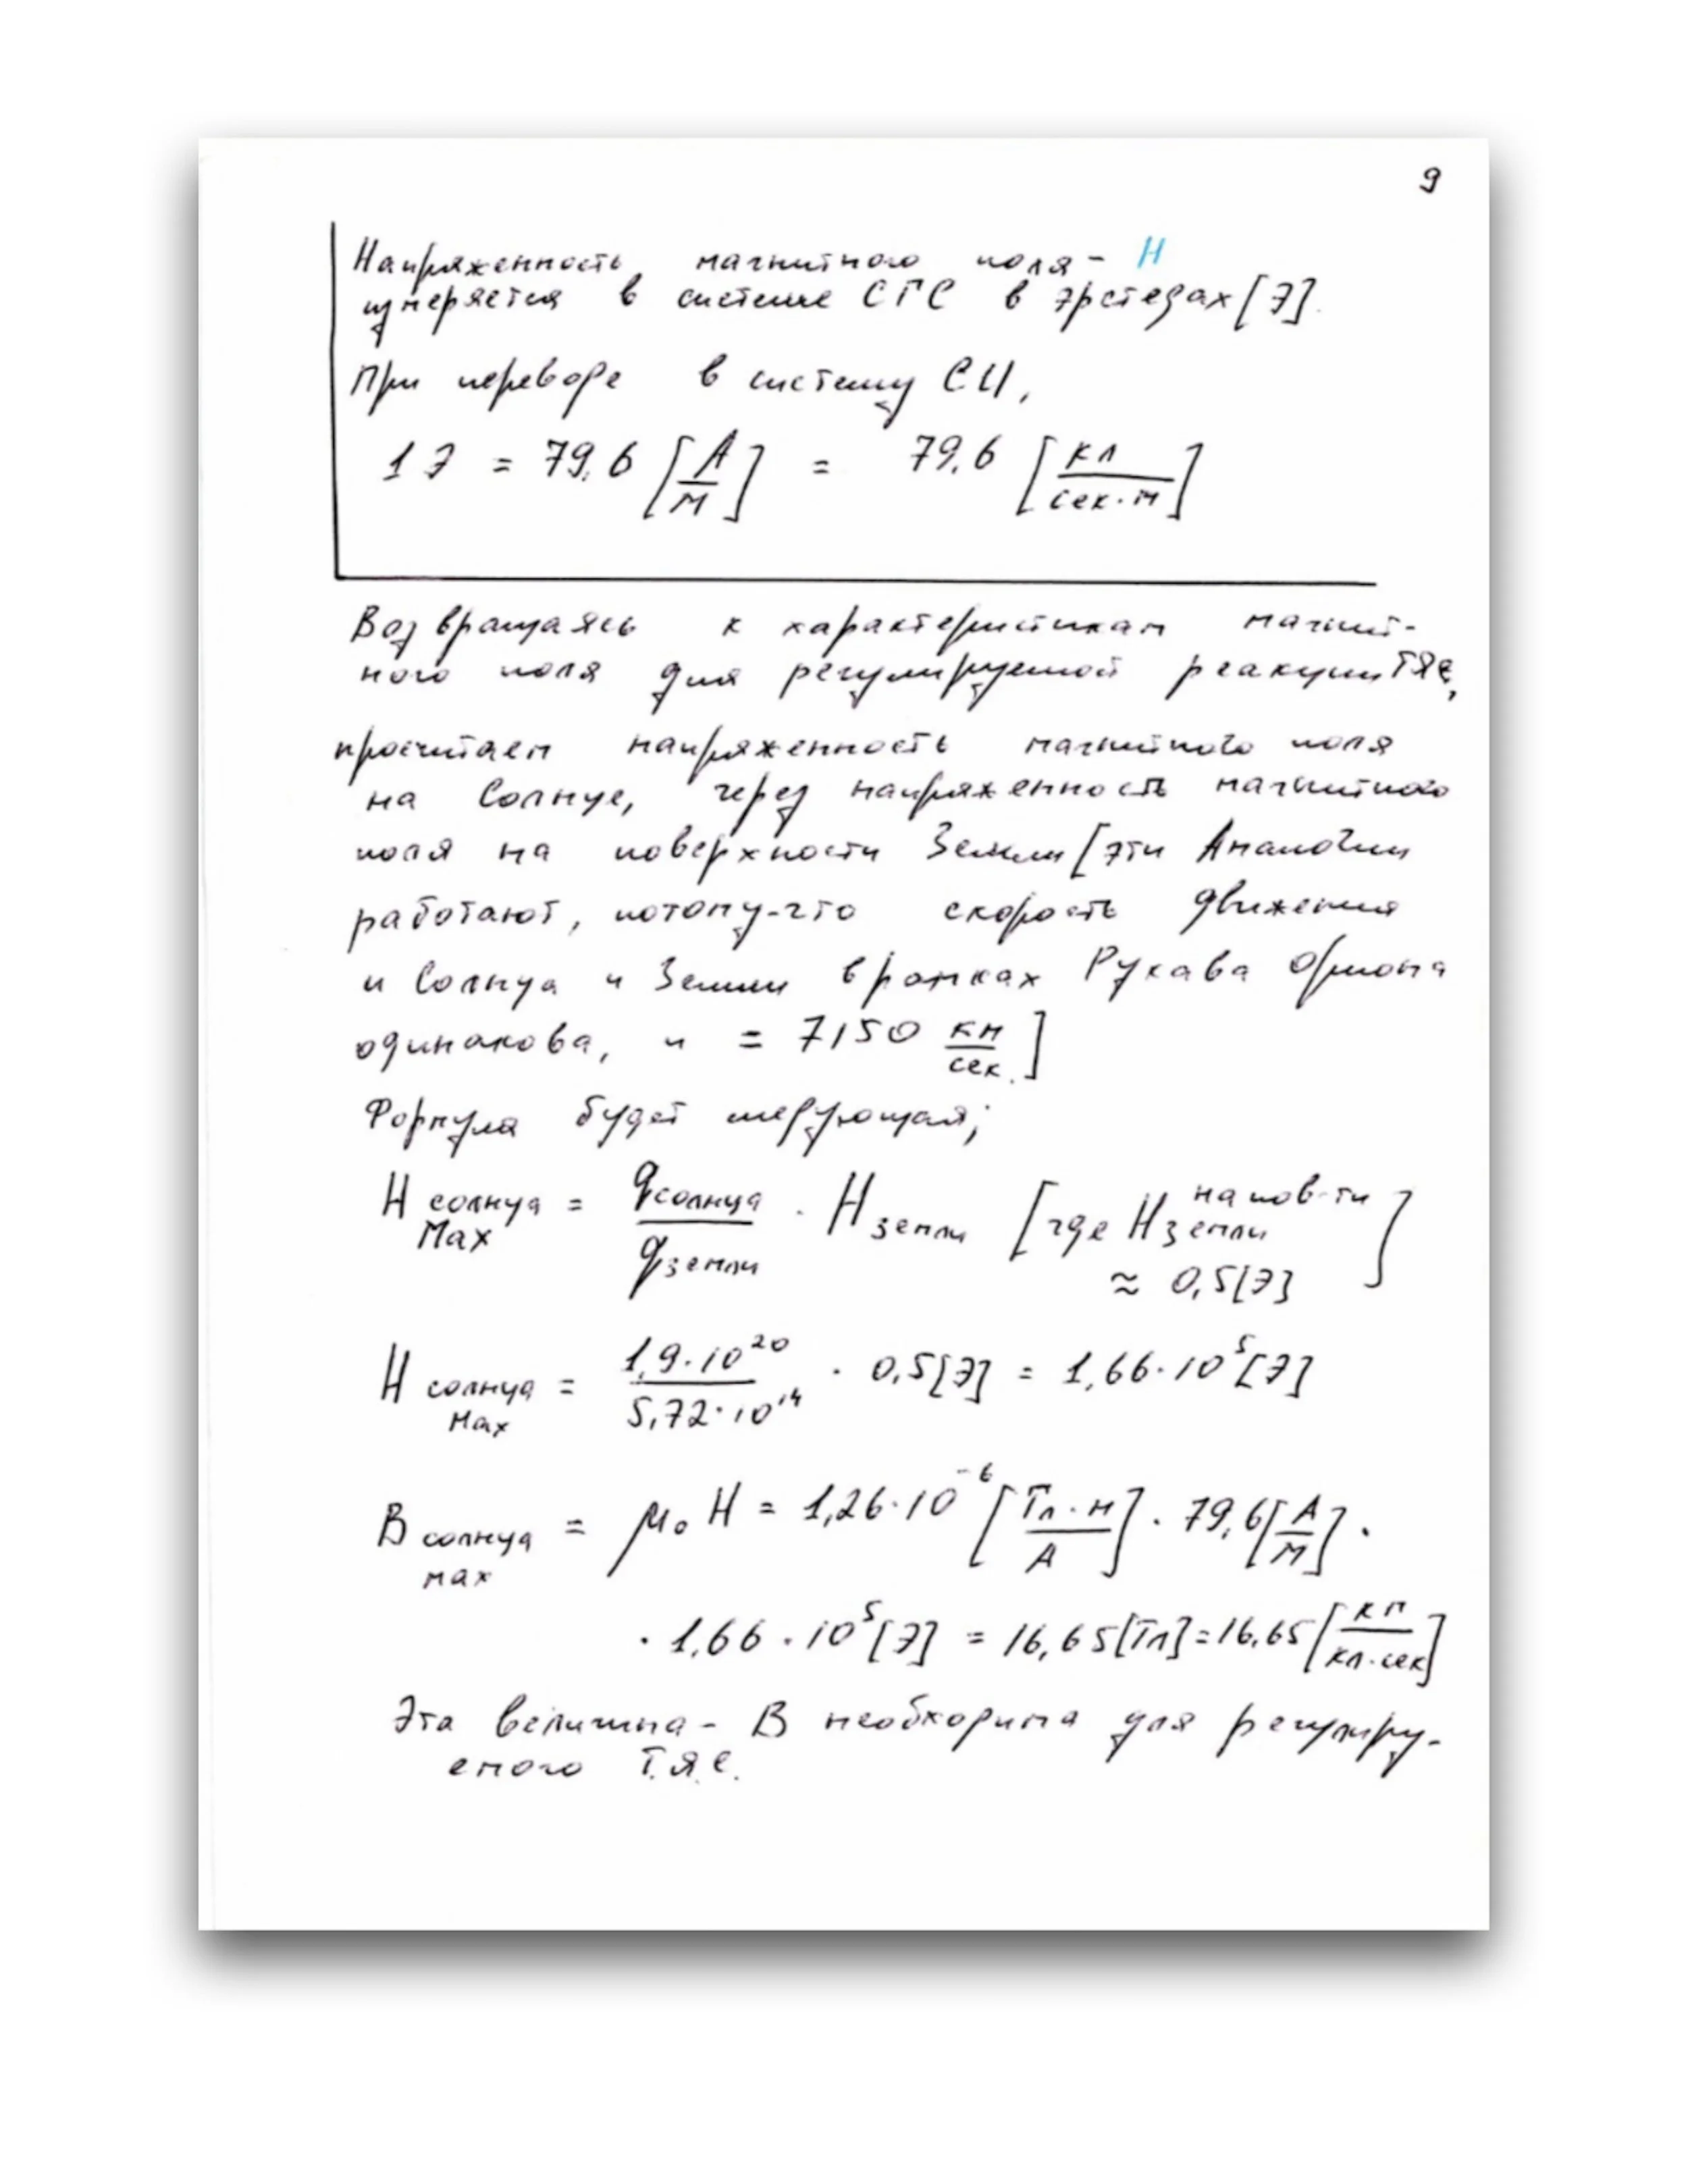 9
Напряженность магнитного поля - H
измеряется в системе СГС в эрстедах [Э].
При переводе в систему СИ,
1 Э = 79,6 [А/м] = 79,6 [кл/сек·м]
Возвращаясь к характеристикам магнит-
ного поля для регулируемой реакции ТЯС,
просчитаем напряженность магнитного поля
на Солнце, через напряженность магнитного
поля на поверхности Земли [эти Аналогии
работают, потому-что скорость движения
и Солнца и Земли в рамках Рукава Ориона
одинакова, и = 7150 км/сек.]
Формула будет следующая;
H солнца Max = q солнца / q земли · H земли [где H земли на пов-ти ≈ 0,5[Э]]
H солнца Max = 1,9·10²⁰ / 5,72·10¹⁴ · 0,5[Э] = 1,66·10⁵[Э]
B солнца max = μ₀ H = 1,26·10⁻⁶ [Тл·м/А] · 79,6[А/м] ·
· 1,66·10⁵[Э] = 16,65[Тл] = 16,65 [кг/кл·сек]
Эта величина - B необходима для регулиру-
емого Т.Я.С.